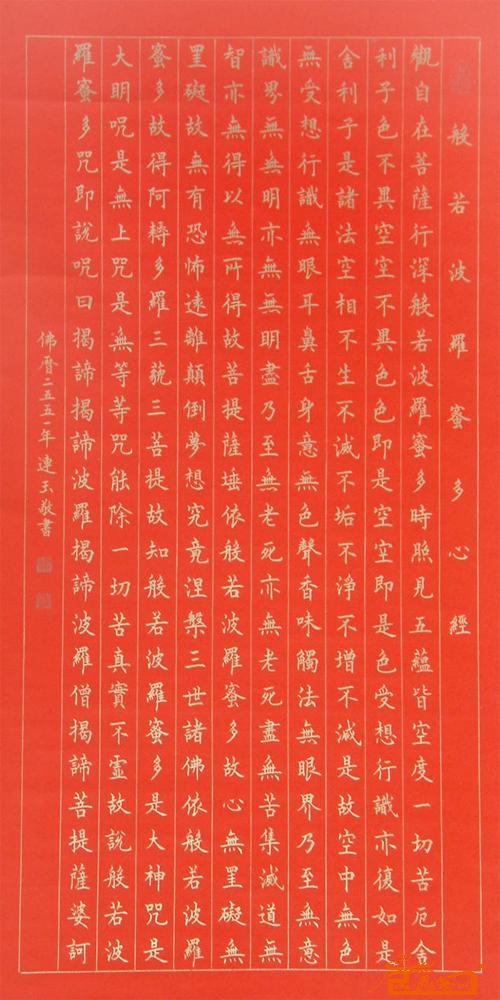 般若波羅蜜多心經
觀自在菩薩行深般若波羅蜜多時照見五蘊皆空度一切苦厄舍
利子色不異空空不異色色即是空空即是色受想行識亦復如是
舍利子是諸法空相不生不滅不垢不淨不增不減是故空中無色
無受想行識無眼耳鼻舌身意無色聲香味觸法無眼界乃至無意
識界無無明亦無無明盡乃至無老死亦無老死盡無苦集滅道無
智亦無得以無所得故菩提薩埵依般若波羅蜜多故心無罣礙無
罣礙故無有恐怖遠離顛倒夢想究竟涅槃三世諸佛依般若波羅
蜜多故得阿耨多羅三藐三菩提故知般若波羅蜜多是大神咒是
大明咒是無上咒是無等等咒能除一切苦真實不虛故說般若波
羅蜜多咒即說咒曰揭諦揭諦波羅揭諦波羅僧揭諦菩提薩婆訶
佛曆二五五一年連玉敬書